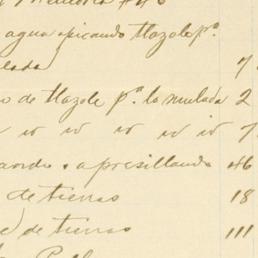 agua picando tlazole pª
lada 7
o de tlazole pª la mulada 2
id id id id id 7
apresillando 46
de tierras 18
de tierras 111